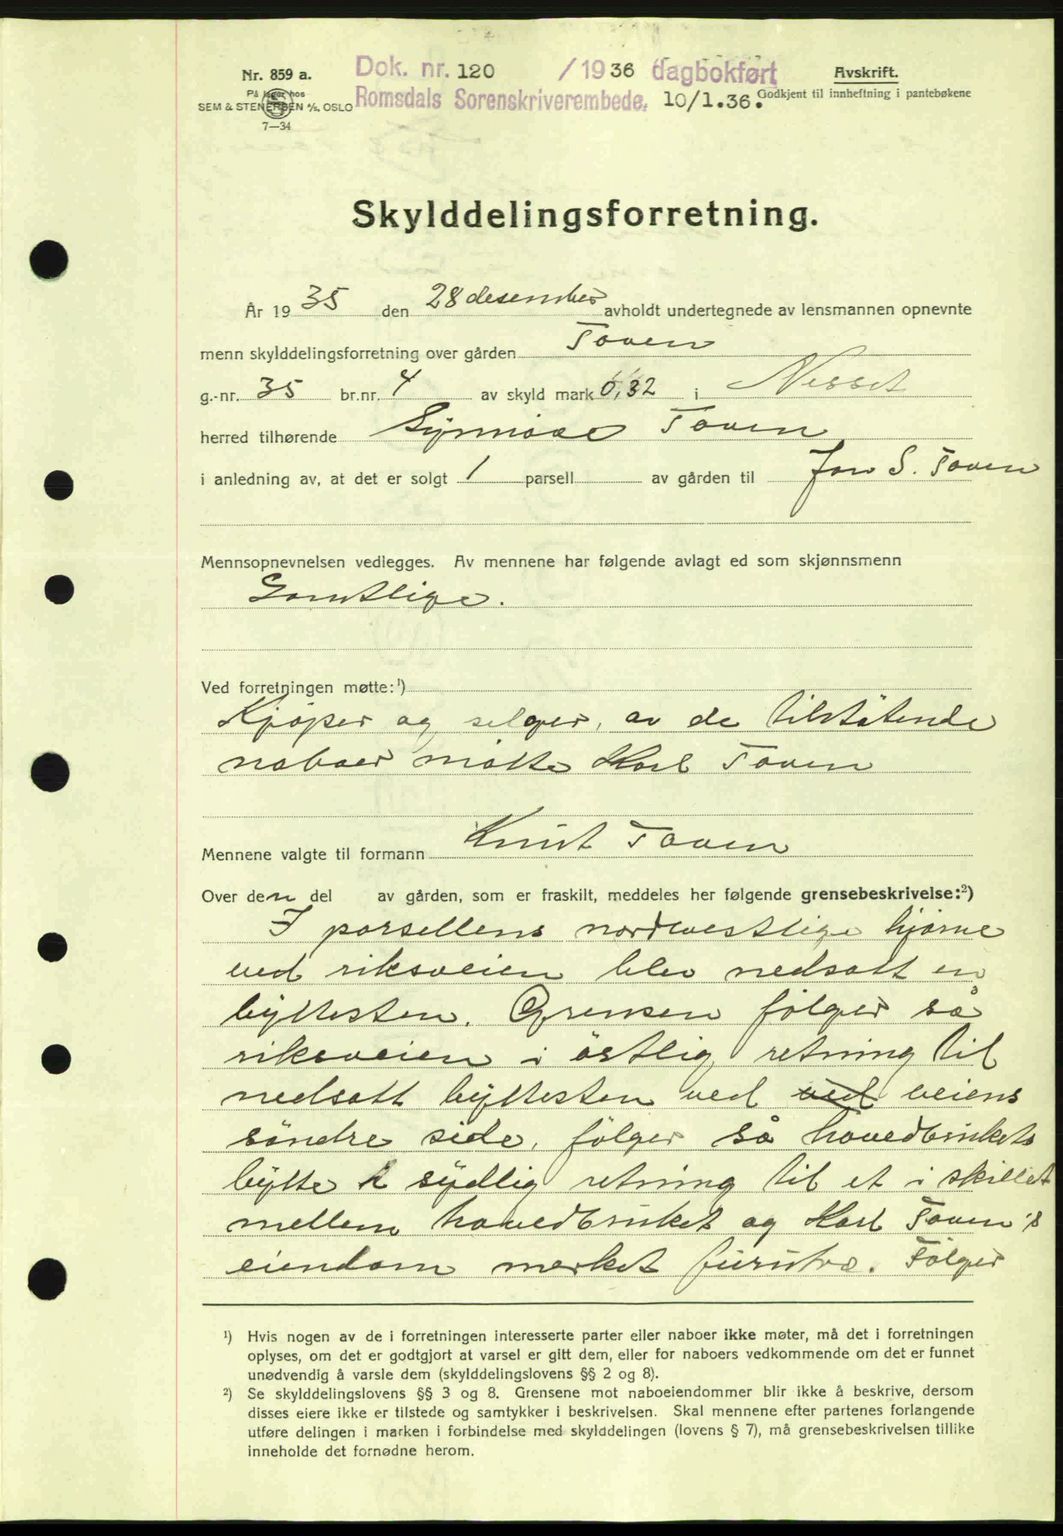 Nr. 859 a.
På lager hos
SEM & STENERSEN A/S, OSLO
7—34
Dok. nr. 120 /1936 dagbokført
Romsdals Sorenskriverembede, 10/1.36.
Avskrift.
Godkjent til innheftning i pantebøkene
Skylddelingsforretning.
År 1935 den 28 desember avholdt undertegnede av lensmannen opnevnte
menn skylddelingsforretning over gården Toven
g.-nr. 35 br.nr. 4 av skyld mark 0,32 i Nesset
herred tilhørende Synnøve Toven
i anledning av, at det er solgt 1 parsell av gården til Jon S. Toven
Mennsopnevnelsen vedlegges. Av mennene har følgende avlagt ed som skjønnsmenn
Samtlige.
Ved forretningen møtte:¹)
Kjøper og selger, av de tilstøtende
naboer møtte Karl Toven
Mennene valgte til formann Knut Toven
Over den del av gården, som er fraskilt, meddeles her følgende grensebeskrivelse:²)
I parsellens nordvestlige hjørne
ved riksveien blev nedsatt en
byttesten. Grensen følger så
riksveien i östlig retning til
nedsatt byttesten ved ved veiens
söndre side, følger så hovedbrukets
bytte i sydlig retning til et i skillet
mellem hovedbruket og Karl Toven's
eiendom merket furutre. Følger
¹) Hvis nogen av de i forretningen interesserte parter eller naboer ikke møter, må det i forretningen
oplyses, om det er godtgjort at varsel er gitt dem, eller for naboers vedkommende om det er funnet
unødvendig å varsle dem (skylddelingslovens §§ 2 og 8).
²) Se skylddelingslovens §§ 3 og 8. Grensene mot naboeiendommer blir ikke å beskrive, dersom
disses eiere ikke er tilstede og samtykker i beskrivelsen. Skal mennene efter partenes forlangende
utføre delingen i marken i forbindelse med skylddelingen (lovens § 7), må grensebeskrivelsen tillike
inneholde det fornødne herom.